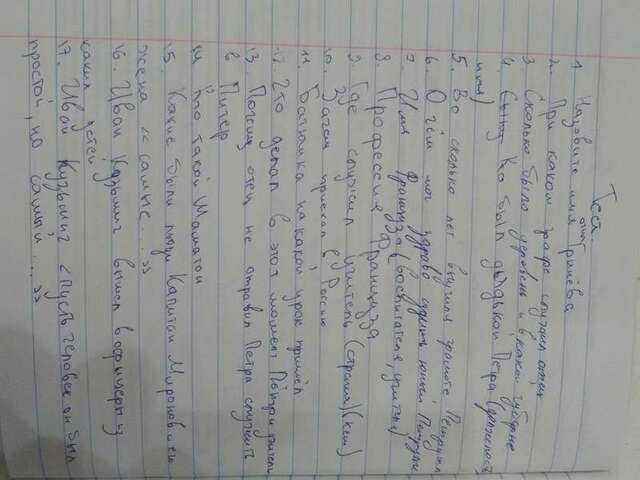 Тест.
1. Назовите имя отца Гринёва
2. При каком графе служил отец
3. Сколько было деревень и в какой губерне
4. Ко был дядькой Петра (должность,
имя)
5. Во сколько лет выучился грамоте Петруша
6. О чём мог здраво судить юный Петруша
7. Имя Француза (воспитателя, учителя)
8. Профессия Француза
9. Где служил учитель (страна) (кем)
10. Зачем приехал в Россию
11. Батюшка на какой урок пришёл
12. Что делал в этот момент Пётр и учитель
13. Почему отец не отравил Петра служить
в Питер
14. Кто такой Шаматон
15. Какие были люди Капитан Миронов и его
жена «самые...»
16. Иван Кузьмич вышел в офицеры из
каких детей
17. Иван Кузьмич «пусть человек он был
простой, но самый...»